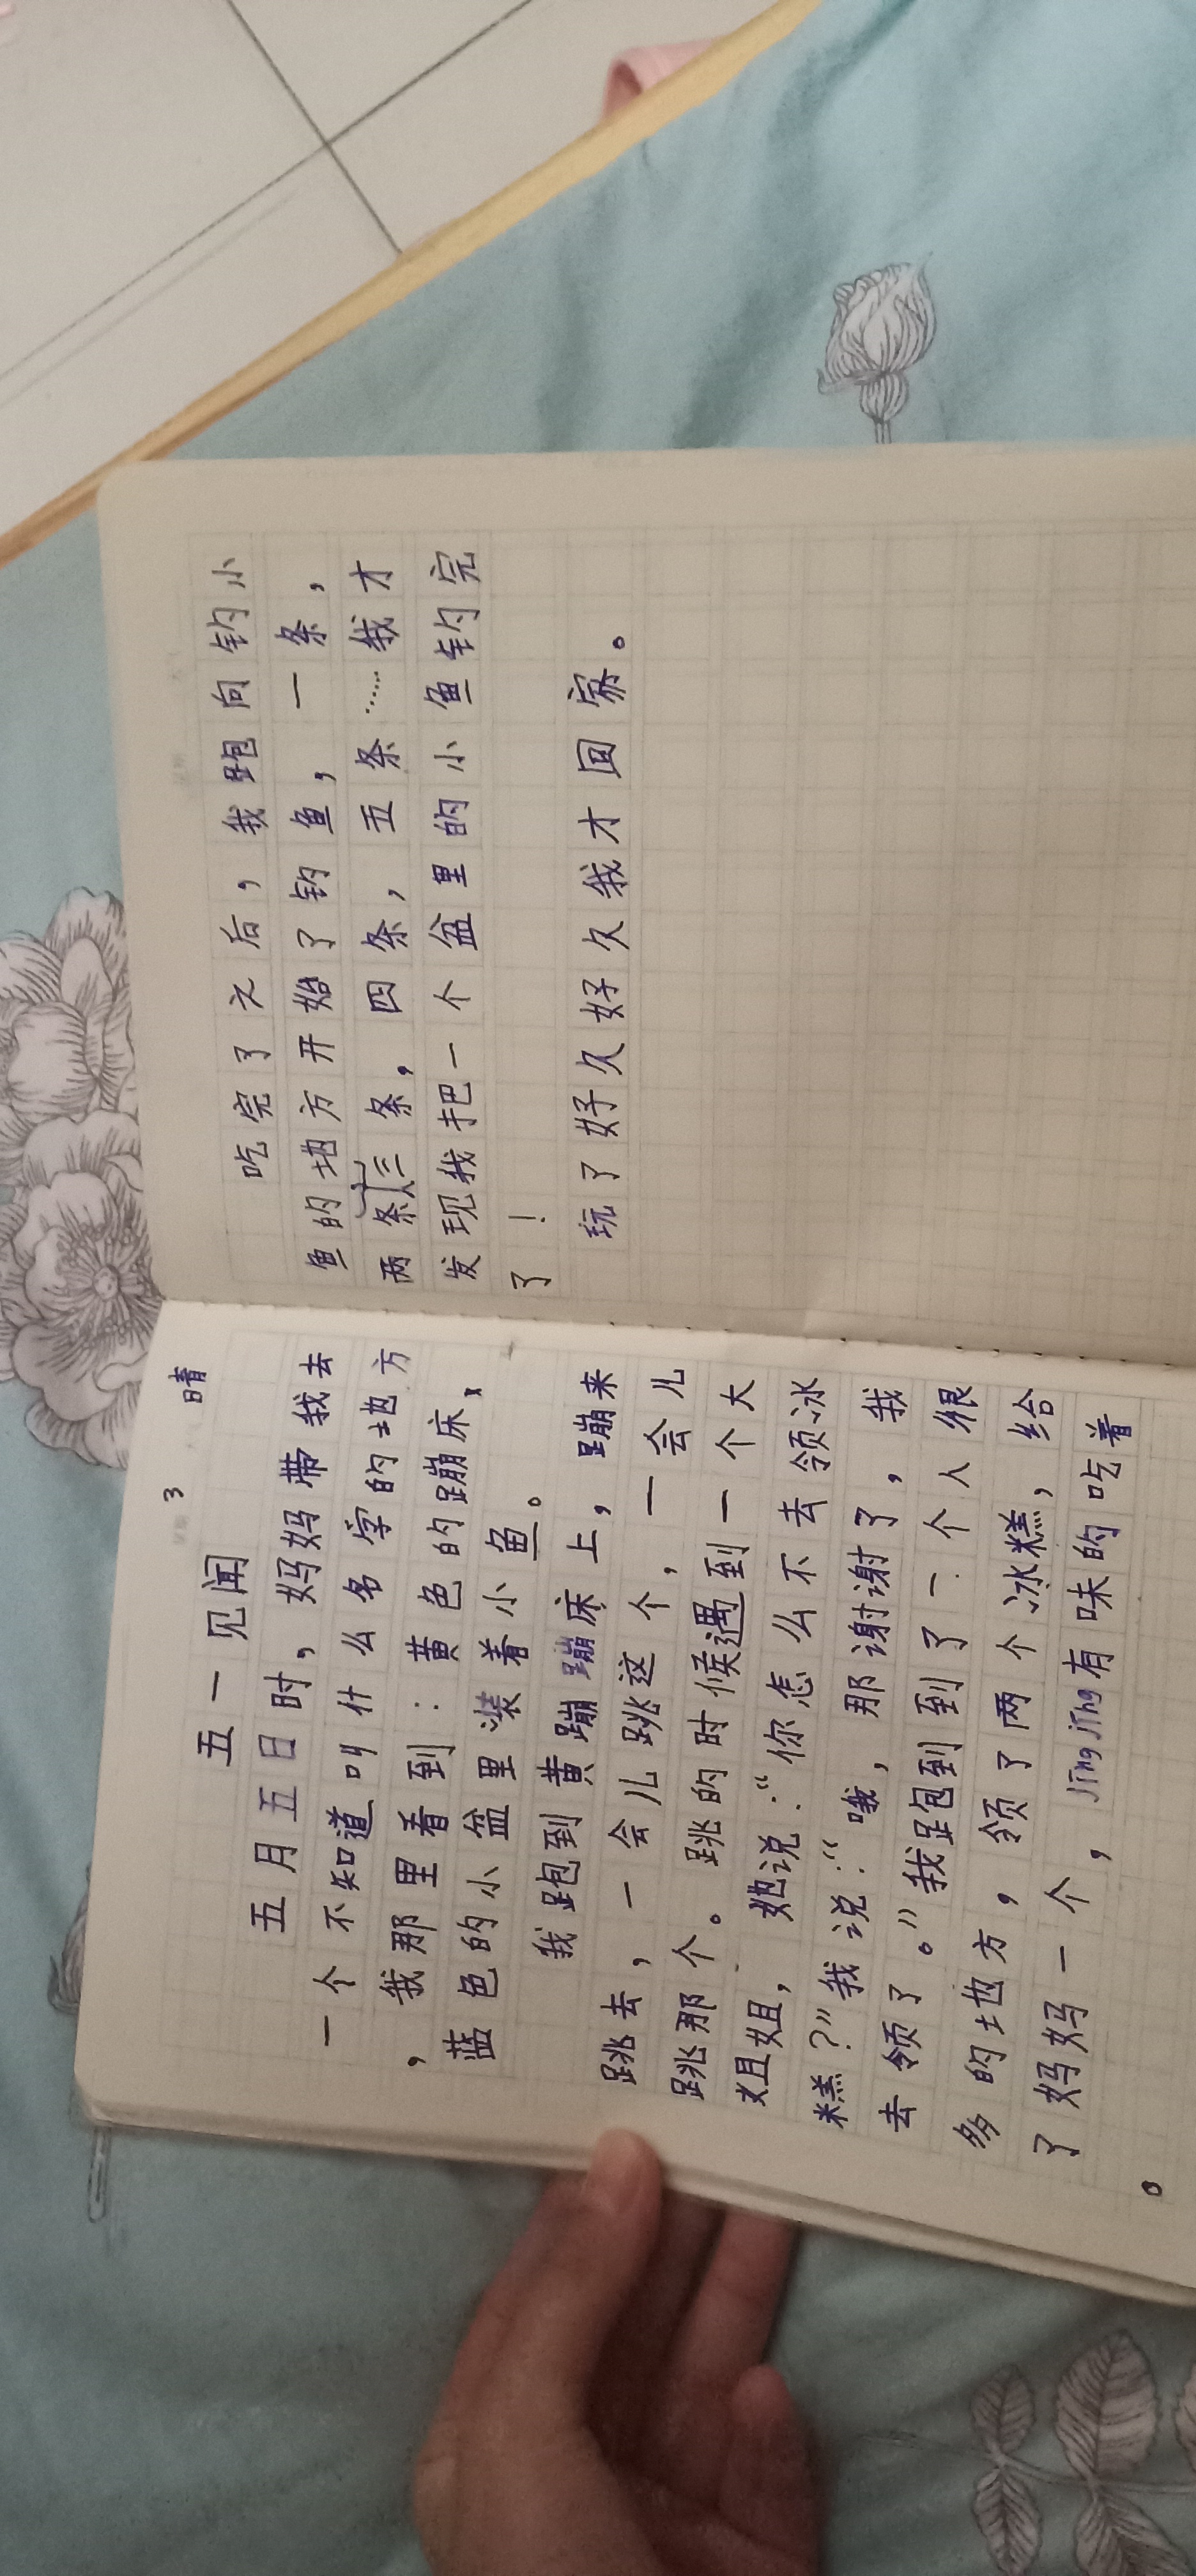 3 晴
五一见闻
五月五日时，妈妈带我去
一个不知道叫什么名字的地方
，我那里看到：黄色的蹦床、
蓝色的小盆里装着小鱼。
我跑到黄蹦蹦床上，蹦来
跳去，一会儿跳这个，一会儿
跳那个。跳的时候遇到一个大
姐姐，她说：“你怎么不去领冰
糕？”我说：“哦，那谢谢了，我
去领了。”我跑到到了一个人很
多的地方，领了两个冰糕，给
了妈妈一个，jīngjīng有味的吃着
。
吃完了之后，我跑向钓小
鱼的地方开始了钓鱼，一条，
两条，三条，四条，五条……我才
发现我把一个盆里的小鱼钓完
了！
玩了好久好久我才回家。